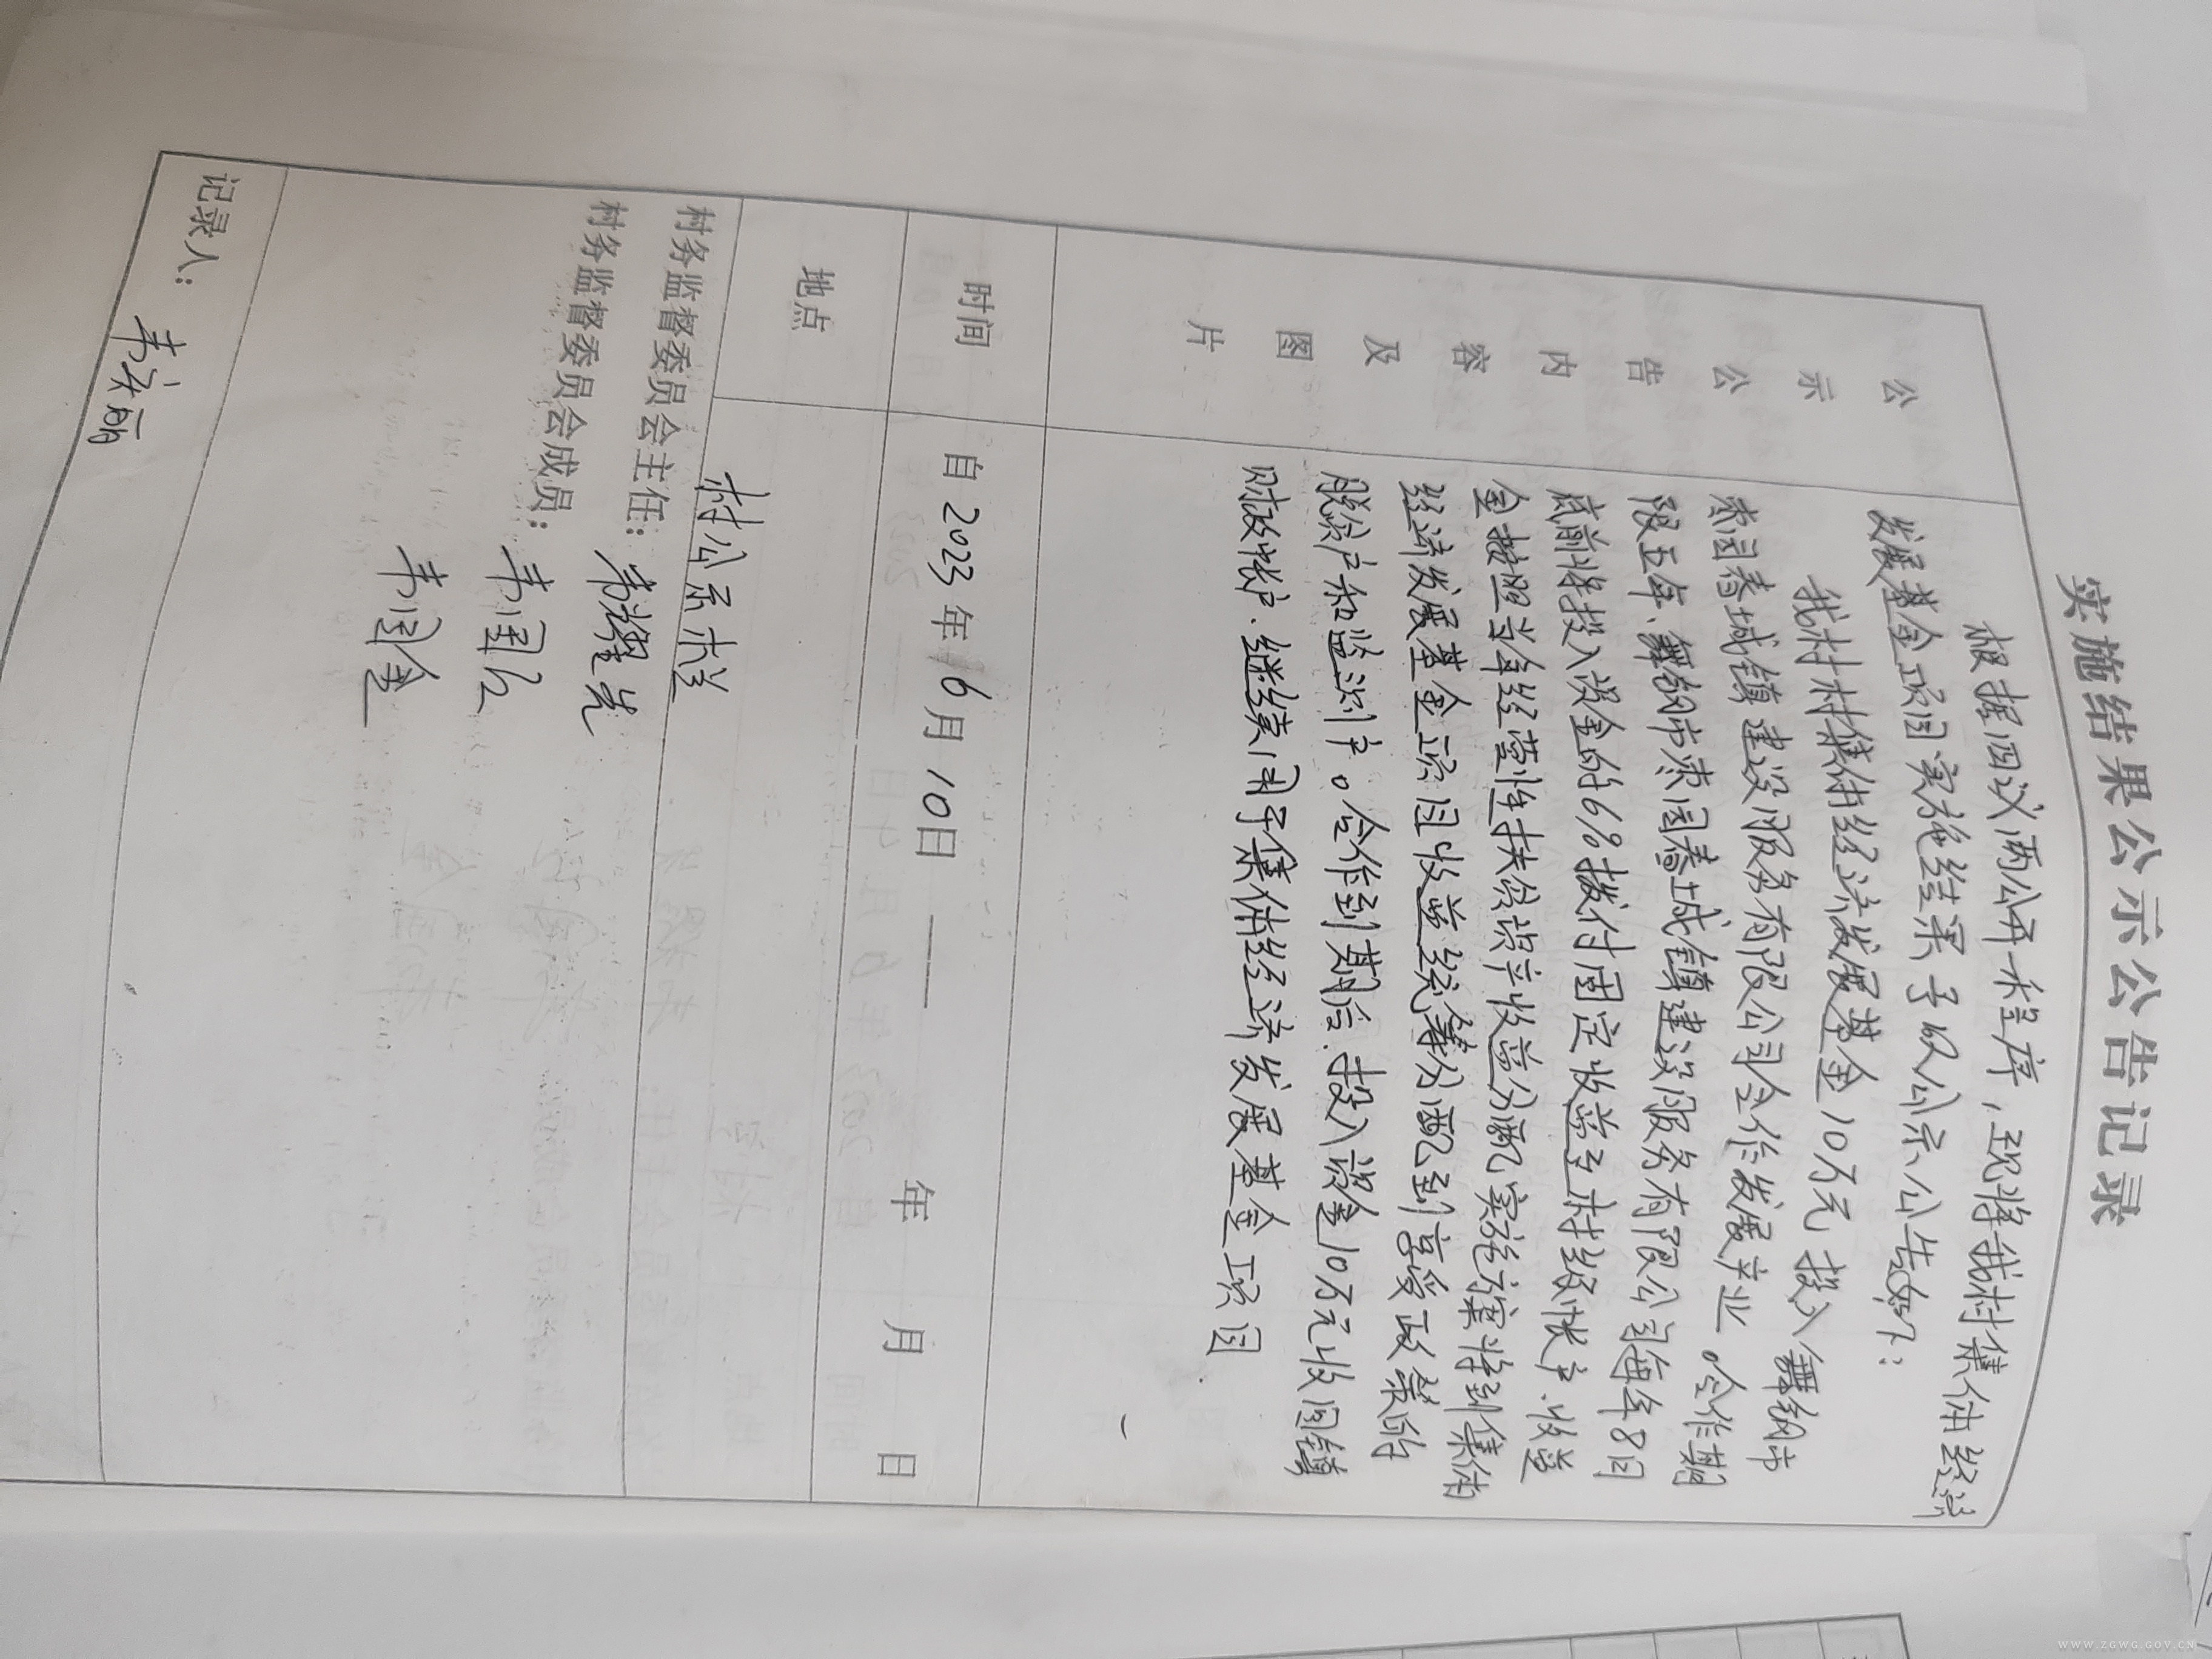 实施结果公示公告记录
公示公告内容及图片
根据四议两公开程序，现将我村集体经济
发展基金项目实施结果予以公示公告如下：
我村村集体经济发展基金10万元投入舞钢市
枣园春城镇建设服务有限公司合作发展产业。合作期
限五年、舞钢市枣园春城镇建设服务有限公司每年8月
底前将投入资金的6%拨付固定收益至村级帐户.收益
金按照当年经营性扶贫资产收益分配实施方案将到集体
经济发展基金项目收益统筹分配到享受政策的
脱贫户和监测户。合作到期后.投入资金10万元收回镇
财政帐户.继续用于集体经济发展基金项目.
时间 自2023年6月10日——年 月 日
地点 村公示栏
村务监督委员会主任：韦耀先
村务监督委员会成员：韦国
韦国金
记录人：韦 丽
WWW.ZGWG.GOV.CN